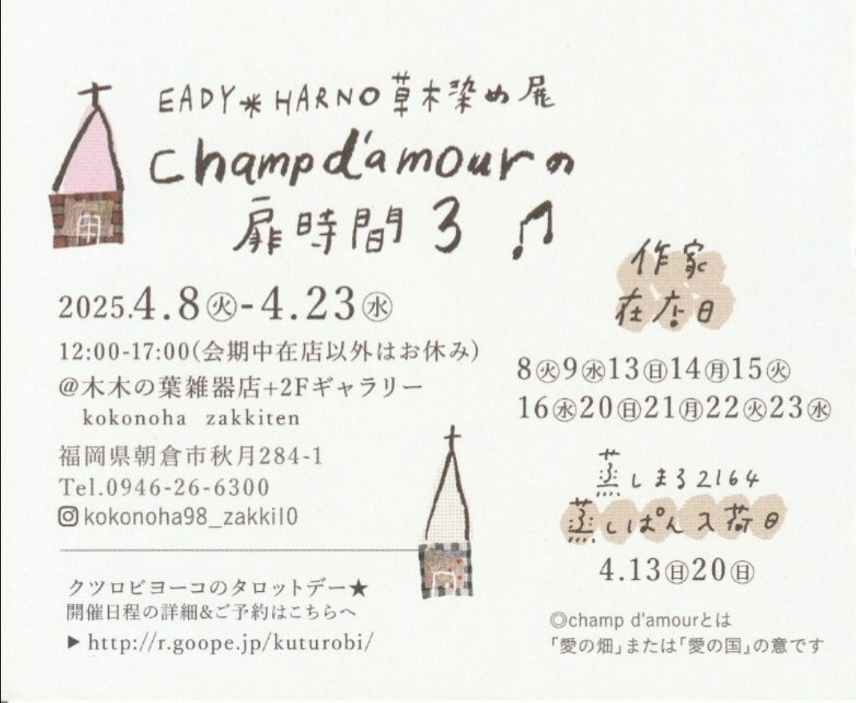 EADY＊HARNO草木染め展
champ d'amourの
扉時間3 ♫
2025.4.8㊋-4.23㊌
12:00-17:00(会期中在店以外はお休み)
@木木の葉雑器店+2Fギャラリー
kokonoha zakkiten
福岡県朝倉市秋月284-1
Tel.0946-26-6300
kokonoha98_zakki10
クツロビヨーコのタロットデー★
開催日程の詳細&ご予約はこちらへ
▶http://r.goope.jp/kuturobi/
作家
在店日
8㊋9㊌13㊐14㊊15㊋
16㊌20㊐21㊊22㊋23㊌
蒸しまる2164
蒸しぱん入荷日
4.13㊐20㊐
◎champ d'amourとは
「愛の畑」または「愛の国」の意です